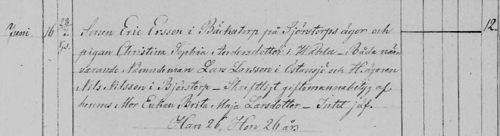 Juni. 16 28/7 Sonen Eric Ersson i Båckatorp på Sjörstorps ägor och 12.
pigan Christina Sophia Andersdotter i - Båda när-
varande Nämndeman Lars Larsson i Östansjö och Hägaren
Nils Nilsson i Björstorp - Skriftligt giftomannabetyg af
hennes Mor Enkan Brita Maja Larsdotter - Intet jäf.
Han 26, Hon 26 år